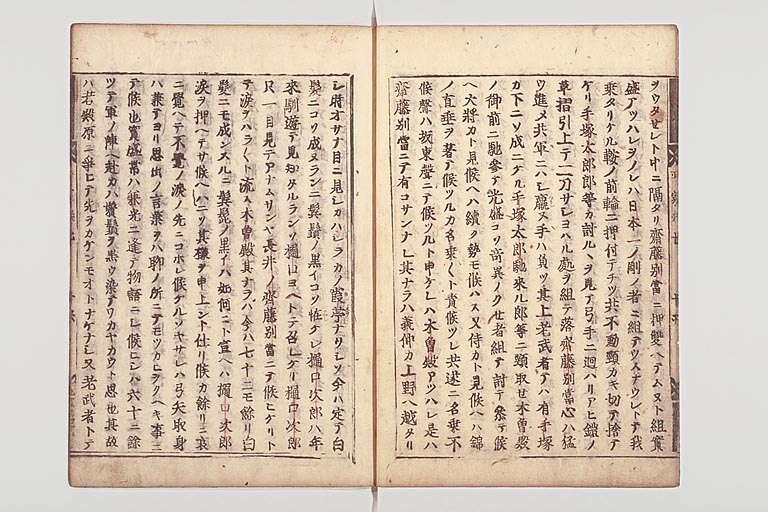 ヲウタセシト中ニ隔タリ齋藤別當ニ押雙ヘテムスト組實
盛アツハレヲノレハ日本一ノ剛ノ者ニ組テウスナウレトテ我
乘タリケル鞍ノ前輪ニ押付テチツ共不動頸カキ切テ捨テ
ケリ手塚太郎郎等カ討ルヽヲ見テ弓手ニ迴ハリアヒ鎧ノ
草摺引上テ二刀サシヨハル處ヲ組テ落齋藤別當心ハ猛
ウ進メ共軍ニハシ羸ヌ手ハ負ツ其上老武者テハ有手塚
カ下ニソ成ニケル手塚太郎馳來ル郎等ニ頸取せ木曾殿
ノ御前ニ馳參テ光盛コソ奇異ノクせ者組テ討テ參テ候
ヘ大將カト見候ヘハ續ク勢モ候ハス又侍カト見候ヘハ錦
ノ直垂ヲ著テ候ツルカ名乘〱ト責候ツレ共遂ニ名乘不
候聲ハ坂東聲ニテ候ツルト申ケレハ木曾殿アツハレ是ハ
齋藤別當ニテ有コサンナレ其ナラハ義仲カ上野ヘ越タリ
シ時オサナ目ニ見シカハシラカノ霞亭ナリシソ今ハ定テ白
髮ニコソ成ヌランニ鬢鬚ノ黑イコソ恠ケレ樋口次郎ハ年
來馴遊テ見知タルランソ樋口ヨヘトテ召レケリ樋口次郎
只一目見テアナムサンヤ長井ノ齊藤別當ニテ候ヒケリト
テ涙ヲハラ〱ト流ス木曾殿其ナラハ今ハ七十ニモ餘リ白
髮ニモ成シスルニ鬢鬚ノ黑イハ如何ニト宣ヘハ樋口次郎
涙ヲ押ヘテサ候ヘハコソ其樣ヲ申上ント仕リ候カ餘リニ哀
ニ覺ヘテ不覺ノ涙ノ先ニコホレ候ケルソヤサレハ弓矢取身
ハ兼テヨリ思出ノ言葉ヲハ聊ノ所ニテモツカヒヲクヘキ事ニ
テ候也實盛常ハ兼光ニ逢テ物語ニシ候ヒシハ六十ニ餘
ツテ軍ノ陣ヘ赴カハ鬢鬚ヲ黑ウ染テワカヤカウト思也其故
ハ若殿原ニ爭ヒテ先ヲカケンモオトナケナシ又老武者トテ